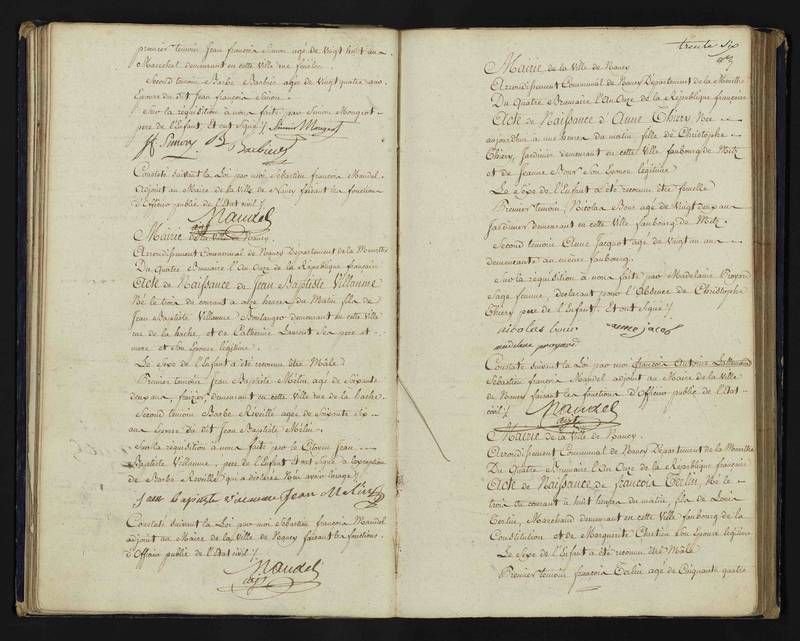 premier temoin Jean françois Simon agé de vingt huit ans
Marechal demeurant en cette ville rue
Second temoin Barbe Barbier agée de vingt quatre ans
Epouse du dit Jean françois Simon.
Sur la réquisition à nous faite par Simon Mongeot
pere de l'Enfant. Et ont Signé /. Simon Mongeot
Barbier
Constaté suivant la Loi par moi Sébastien françois Mandel
adjoint au Maire de la Ville de Nancy faisant les fonctions
d'officier public de l'Etat civil /.
Mandel
adjt
Mairie de la Ville de Nancy.
Arrondissement Communal de Nancy Département de la Meurthe
Du Quatre Brumaire l'An Onze de la République française
Acte de Naissance de Jean Baptiste Villaume
Né le trois du courant à onze heures du Matin fils de
Jean Baptiste Villaume Boulanger demeurant en cette Ville
rue de la hache, et de Catherine Laurent Ses pere et
mere et Son Epouse légitime.
Le Sexe de l'Enfant a été reconnu être Mâle.
Premier temoin, Jean Baptiste Melin agé de Soixante
deux ans, fruitier, demeurant en cette Ville rue de la hache.
Second temoin Barbe Reveillé agée de Soixante Six
ans Epouse du dit Jean Baptiste Melin.
Sur la réquisition à nous faite par le Citoyen Jean
Baptiste Villaume, pere de l'Enfant Et ont Signé à l'exception
de Barbe Reveillé qui a déclaré N'en avoir l'usage /.
Jean Baptiste Jean Melin
Constaté suivant la Loi par moi Sébastien françois Mandel
adjoint au Maire de la Ville de Nancy faisant les fonctions
d'Officier public de l'Etat civil /.
Mandel
adjt
trente six
Mairie de la Ville de Nancy
Arrondissement Communal de Nancy Département de la Meurthe
Du Quatre Brumaire l'An Onze de la République française
Acte de Naissance d'Anne Thiery, Née
aujourd'hui à une heure du matin fille de Christophe
Thiery, Jardinier demeurant en cette Ville faubourg de Metz
et de Jeanne Bour Son Epouse légitime
Le Sexe de l'Enfant a été reconnu être femelle
Premier temoin, Nicolas Bour agé de vingt deux ans
Jardinier demeurant en cette Ville faubourg de Metz.
Second temoin Anne Jacquot agée de vingt un ans
demeurante au même faubourg.
Sur la réquisition à nous faite par Madelaine Proyard
Sage femme, déclarant pour l'Absence de Christophe
Thiery pere de l'Enfant. Et ont Signé /.
nicolas bour anne jacot
madelene proyard
Constaté suivant la Loi par moi françois Antoine Lallemand
Sébastien françois Mandel adjoint au Maire de la Ville
de Nancy faisant les fonctions d'Officier public de l'Etat
civil /.
Mandel
adjt
Mairie de la Ville de Nancy.
Arrondissement Communal de Nancy Département de la Meurthe
Du Quatre Brumaire l'An Onze de la République française
Acte de Naissance de françois Terlin, Né le
trois du courant à huit heures du matin, fils de Louis
Terlin, Marchand demeurant en cette Ville faubourg de la
Constitution et de Marguerite Chretien Son Epouse légitime
Le Sexe de l'Enfant a été reconnu être Mâle
Premier temoin françois Terlin agé de Cinquante quatre